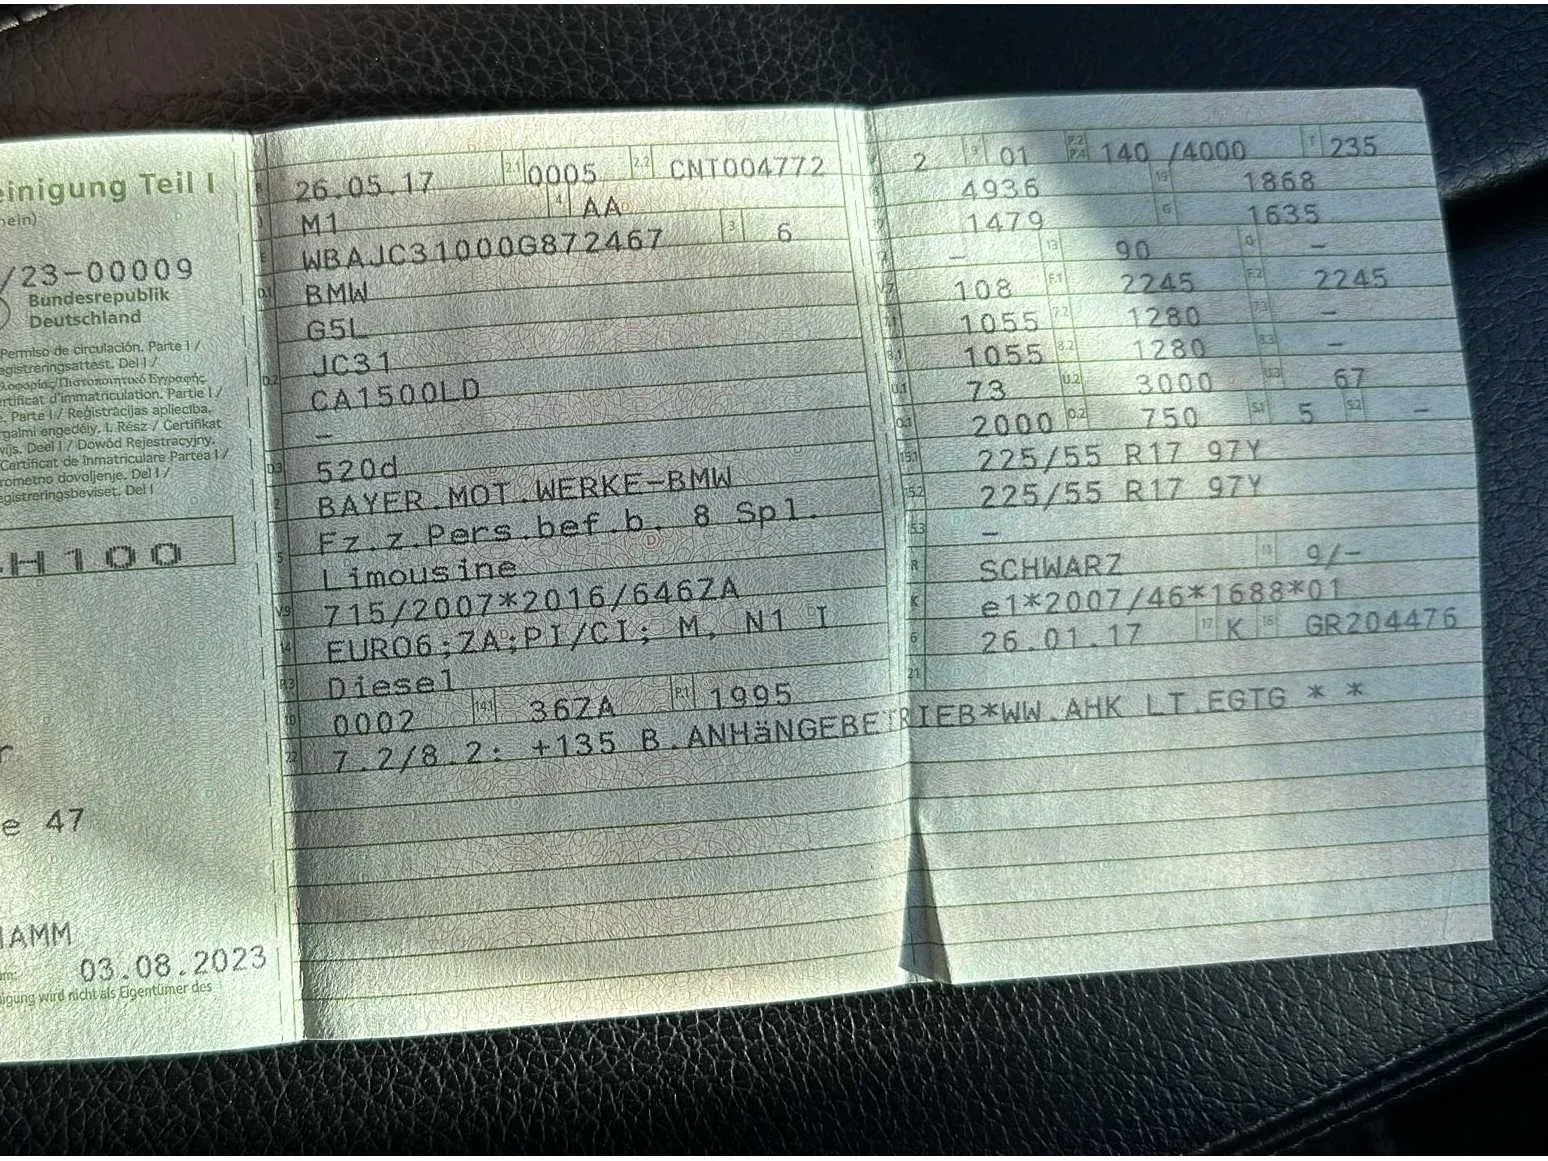 einigung Teil I
hein)
/23-00009
Bundesrepublik
Deutschland
Permiso de circulación. Parte I /
egistreringsattest. Del I /
rtificat d'immatriculation. Partie I /
. Parte I / Reģistrācijas apliecība.
rgalmi engedély, I. Rész / Ċertifikat
vijs. Deel I / Dowód Rejestracyjny,
Certificat de Inmatriculare Partea I /
rometno dovoljenje. Del I /
egistreringsbeviset. Del I
H100
r
e 47
HAMM
03.08.2023
igung wird nicht als Eigentümer des
26.05.17 2.1 0005 2.2 CNT004772
M1 4 AA
WBAJC31000G872467 3 6
D.1 BMW
G5L
JC31
D.2 CA1500LD
–
D.3 520d
BAYER.MOT.WERKE-BMW
Fz.z.Pers.bef.b. 8 Spl.
Limousine
V.9 715/2007*2016/646ZA
14 EURO6;ZA;PI/CI; M, N1 I
P.3 Diesel
10 0002 14.1 36ZA P.1 1995
22 7.2/8.2: +135 B.ANHäNGEBETRIEB*WW.AHK LT.EGTG * *
2 9 01 P.2 P.4 140 /4000 T 235
4936 19 1868
1479 G 1635
– 13 90 Q –
V.7 108 F.1 2245 F.2 2245
1055 7.2 1280 –
8.1 1055 8.2 1280 8.3 –
U.1 73 U.2 3000 U.3 67
O.1 2000 O.2 750 S.1 5 S.2 –
15.1 225/55 R17 97Y
15.2 225/55 R17 97Y
15.3 –
R SCHWARZ 11 9/–
K e1*2007/46*1688*01
6 26.01.17 17 K 16 GR204476
21